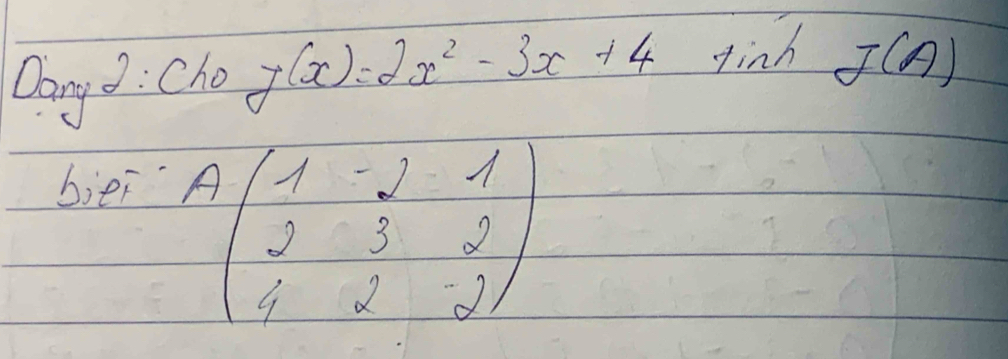 Dạng 2: Cho f(x)=2x² - 3x + 4 tính f(A)
biết A ( 1 -2 1
2 3 2
4 2 -2 )